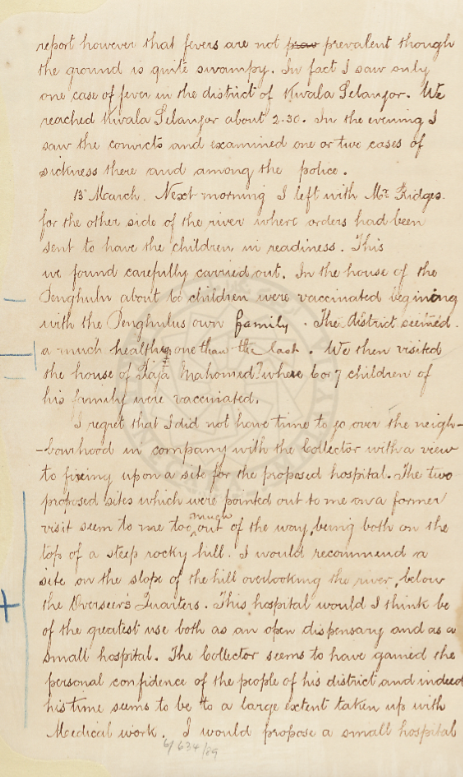 report however that fevers are not prev prevalent though
the ground is quite swampy. In fact I saw only
one case of fever in the district of Kwala Selangor. We
reached Kwala Selangor about 2.30. In the evening I
saw the convicts and examined one or two cases of
sickness there and among the police.
13 March. Next morning I left with Mr Ridges
for the other side of the river where orders had been
sent to have the children in readiness. This
we found carefully carried out. In the house of the
Penghulu about 16 children were vaccinated begining
with the Penghulus own family. The district seemed
a much healthier one than the last. We then visited
the house of Raja Mahomed where 6 or 7 children of
his family were vaccinated.
I regret that I did not have time to go over the neigh-
-bourhood in company with the Collector with a view
to fixing upon a site for the proposed hospital. The two
proposed sites which were pointed out to me on a former
visit seem to me too much out of the way, being both on the
top of a steep rocky hill. I would recommend a
site on the slope of the hill overlooking the river, below
the Overseer's Quarters. This hospital would I think be
of the greatest use both as an open dispensary and as a
small hospital. The Collector seems to have gained the
personal confidence of the people of his district and indeed
his time seems to be to a large extent taken up with
Medical work. I would propose a small hospital
634/89